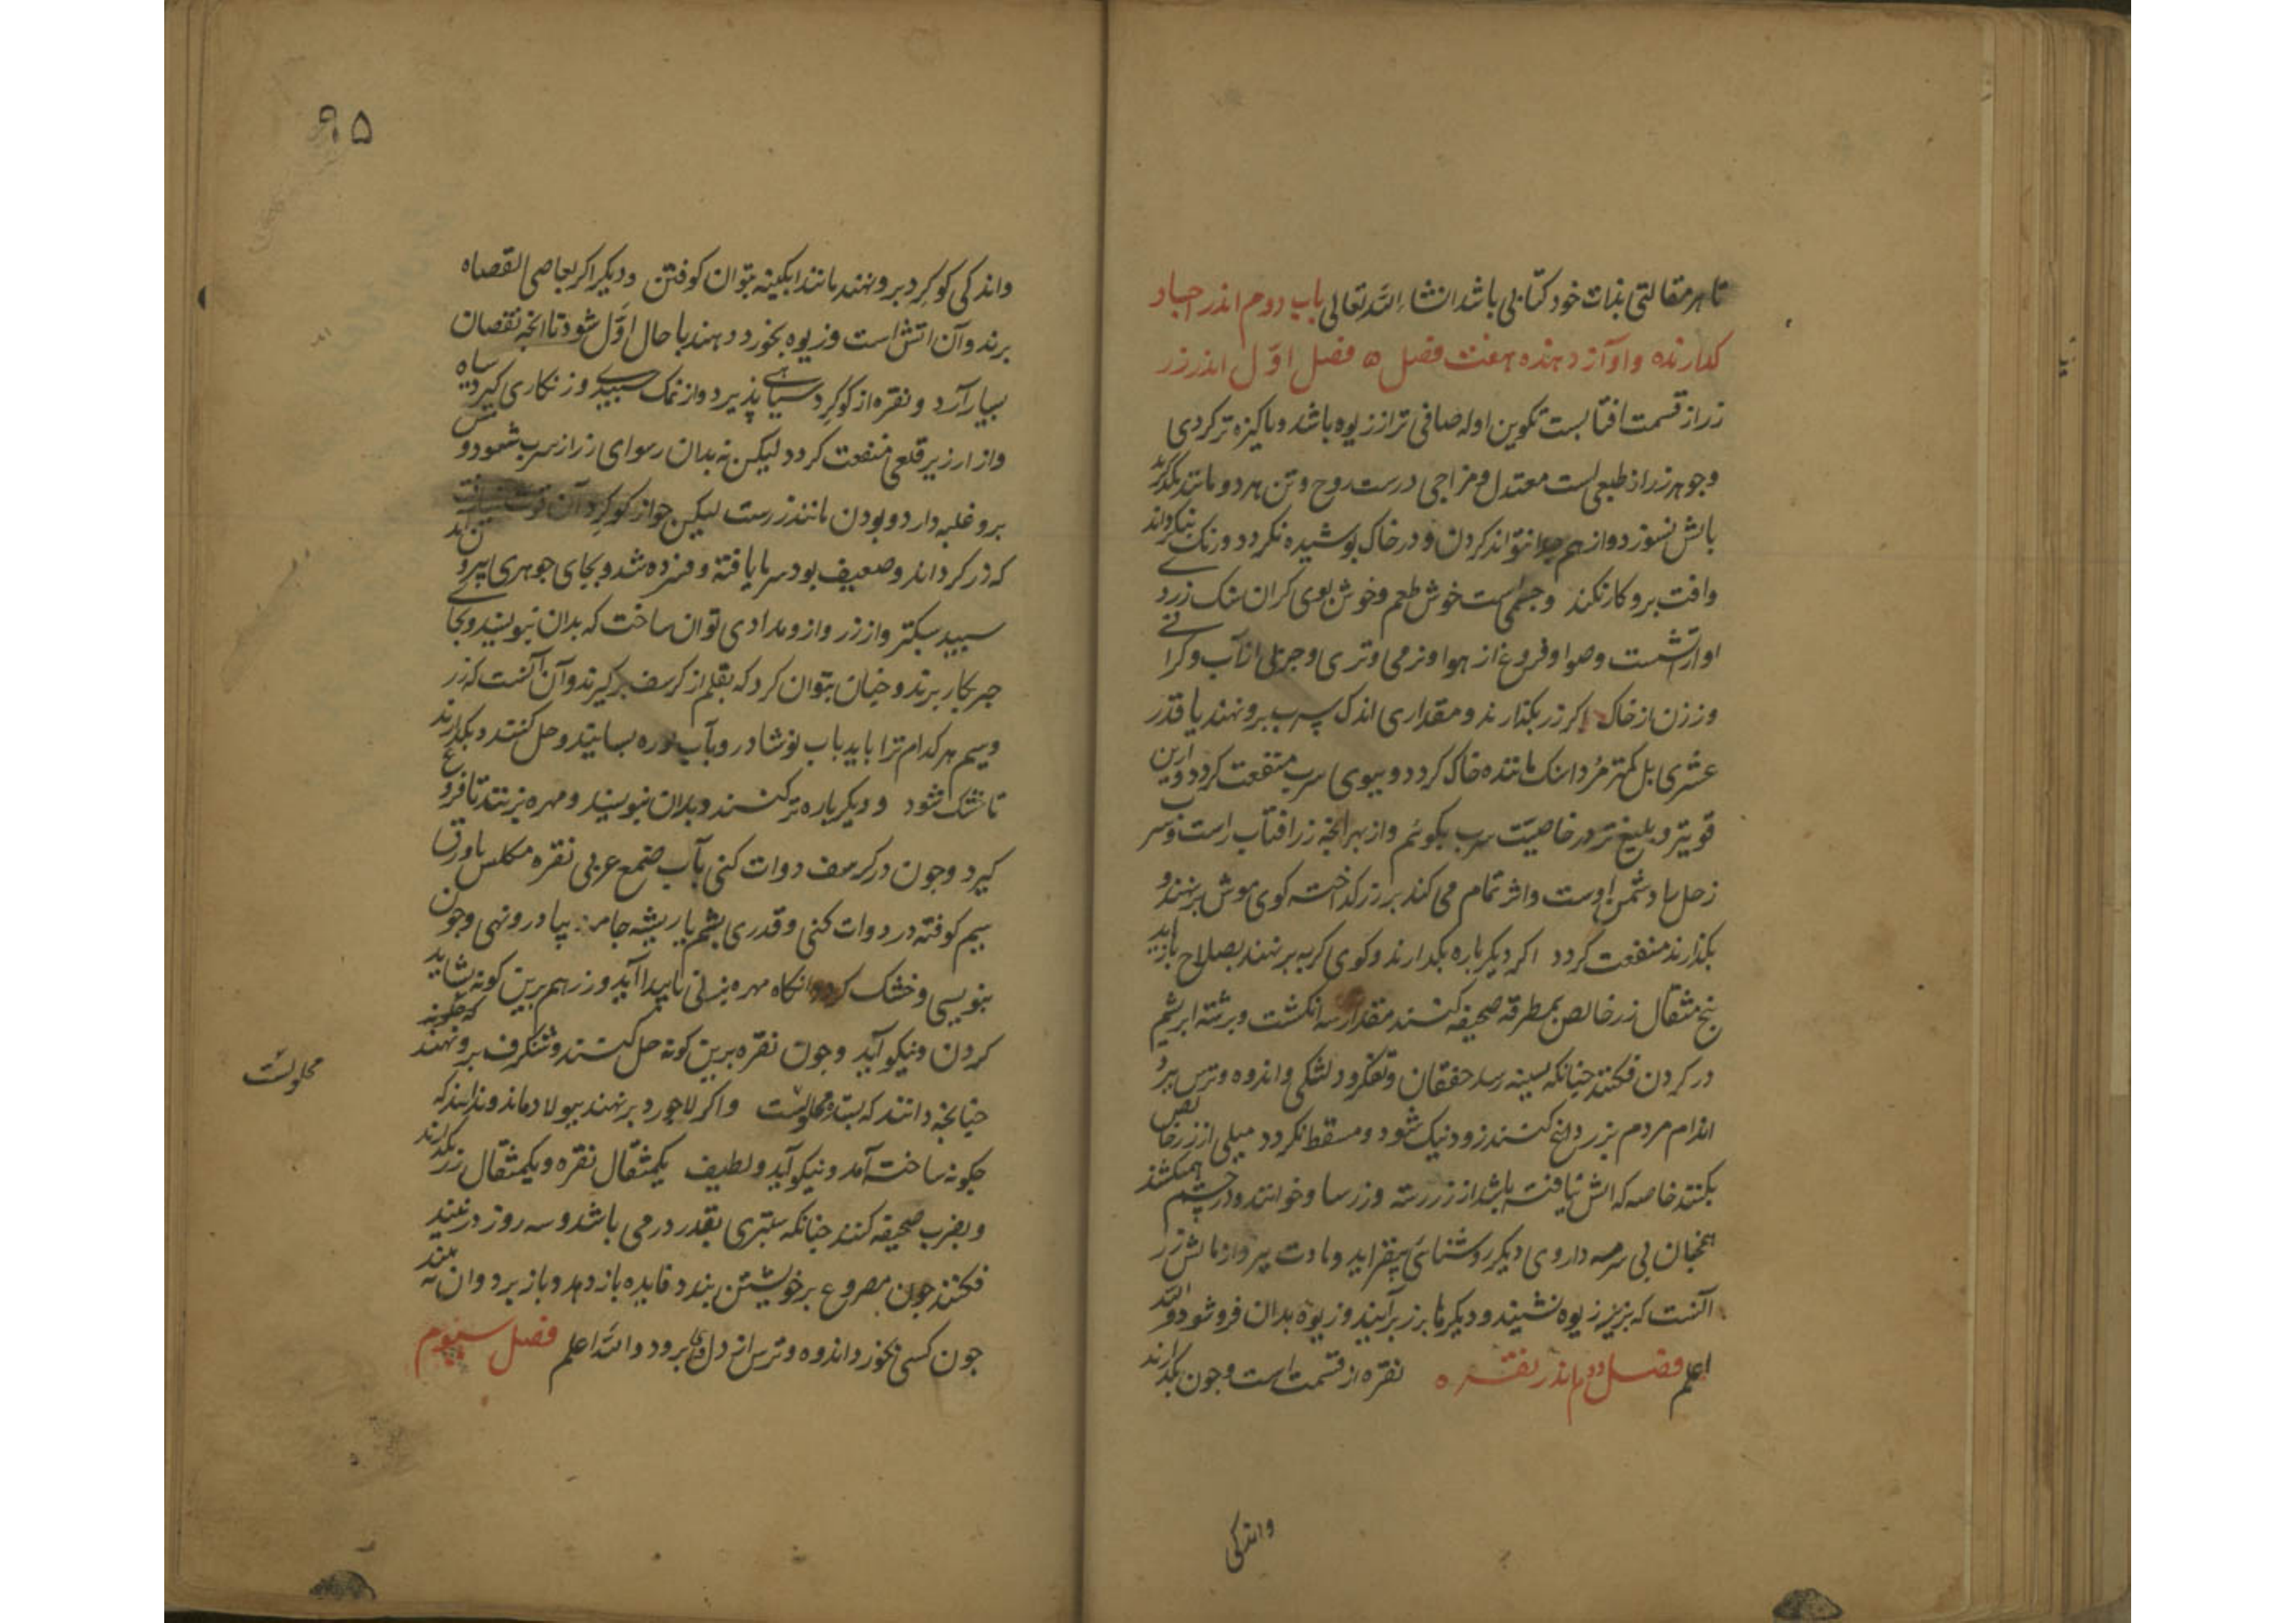 تا هر مقالتی بذات خود کتابی باشد انشاء الله تعالی باب دوم اندر اجساد
کدازنده و اواز دهنده هفت فصل ه فصل اوّل اندر زر
زر از قسمت افتابست تکوین او له صافی تر از زیوه باشد و پاکیزه تر کردی
وجوهر زر از طبعی است معتدل و مزاجی درست روح و تن هر دو مانند یکدیکرند
باتش نسوزد و از هم جدا نتواند کردن و در خاک پوشیده نکردد و زنک نیکرداند
وافت برو کار نکند وجسمی است خوش طعم و خوش بوی کران سنک زردی
او از اتشست وصوا و فروغ از هوا و نرمی و تری و جزیی از آب و کرانی
و وزن از خاک اکر زر بکذارند و مقداری اندک سرب برو نهند یا قدر
عشری بل کمتر مرداسنک مانند خاک کردد و ببوی سرب منفعت کردد و ازین
قویتر و بلیغ تر در خاصیت سرب بکوئم و از بهر انجه زر افتاب راست و سرب
زحل را و دشمن اوست و اثر تمام می کند بر زر کداخته کوی موش برنهند و
بکذارند منفعت کردد اکر دیکر باره بکدارند و کوی کربه برنهند بصلاح باز اید
پنج مثقال زر خالص بمطرقه صحیفه کنند مقدار سه انکشت و برشته ابریشم
در کردن فکنند چنانکه بسینه رسد خفقان و تفکر و دلتنکی و اندوه و ترس ببرد
اندام مردم بزر داغ کنند زود نیک شود و مسقط نکردد میلی از زر خالص
بکنند خاصه که اتش نیافته باشد از زر رسته و زر ساو خوانند و در چشم همیکشند
همچنان بی سرمه داروی دیکر روشنائی بیفزاید و مادت ببرد و ازمایش زر
آنست که بزیر زیوه نشیند و دیکرها بزبر آیند و زیوه بدان فرو شود و الله
اعلم فصل دوم اندر نقره ه نقره از قسمت است و چون بکدارند
واندکی
۹۵
واندکی کوکرد برو نهند مانند ابکینه بتوان کوفتن و دیکر اکر بعاصی القصاه
برند و آن اتش است و زیوه بخورد دهند با حال اوّل شود تا انجه نقصان
بسیار آرد و نقره از کوکرد سیاهی پذیرد و از نمک سپیدی و زنکاری کیرد سیاه
و از ارزیز قلعی منفعت کردد لیکن نه بدان رسوای زر از سرب شعود و
برو غلبه دارد و بودن مانند زر است لیکن چو از کوکرد آن
که زر کرداند و ضعیف بود سرما یافته و فسرده شد و بجای جوهری
سپید سبکتر و از زر و ازو مدادی توان ساخت که بدان بنویسند و بجای
حبر بکار برند و چنان بتوان کرد که بقلم از کرسف برکیرند و آن آنست که زر
و سیم هر کدام ترا باید باب نوشادر و باب بوره بسایند و حل کنند و بکذارند
تا خشک شود و دیکر باره تر کنند و بدان بنویسند و مهره بزنند تا فروغ
کیرد و چون در کرسف دوات کنی بآب ضمع عربی نقره مکلس یا ورق
سیم کوفته در دوات کنی و قدری پشم یا ریشه جامه دیبا درو نهی و چون
بنویسی و خشک کردد انکاه مهره بزنی تا پیدا آید و زر هم برین کونه بشاید
کردن و نیکو آید و چون نقره برین کونه حل کنند و شنکرف برو نهند
چنانچه دانند که بسته محلولست و اکر لاجورد برنهند بپولاد ماند و ندانند که
چکونه ساخته آمد و نیکو آید و لطیف یکمثقال نقره و یکمثقال زر بکدارند
و بضرب صحیفه کنند چنانکه ستبری بقدر درمی باشد و سه روز در نبید
فکنند چون مصروع برخویشتن بندد فایده باز دهد و باز برد و ان نبید
چون کسی بخورد اندوه و ترس از دل وی برود والله اعلم فصل سیوم
محلولست